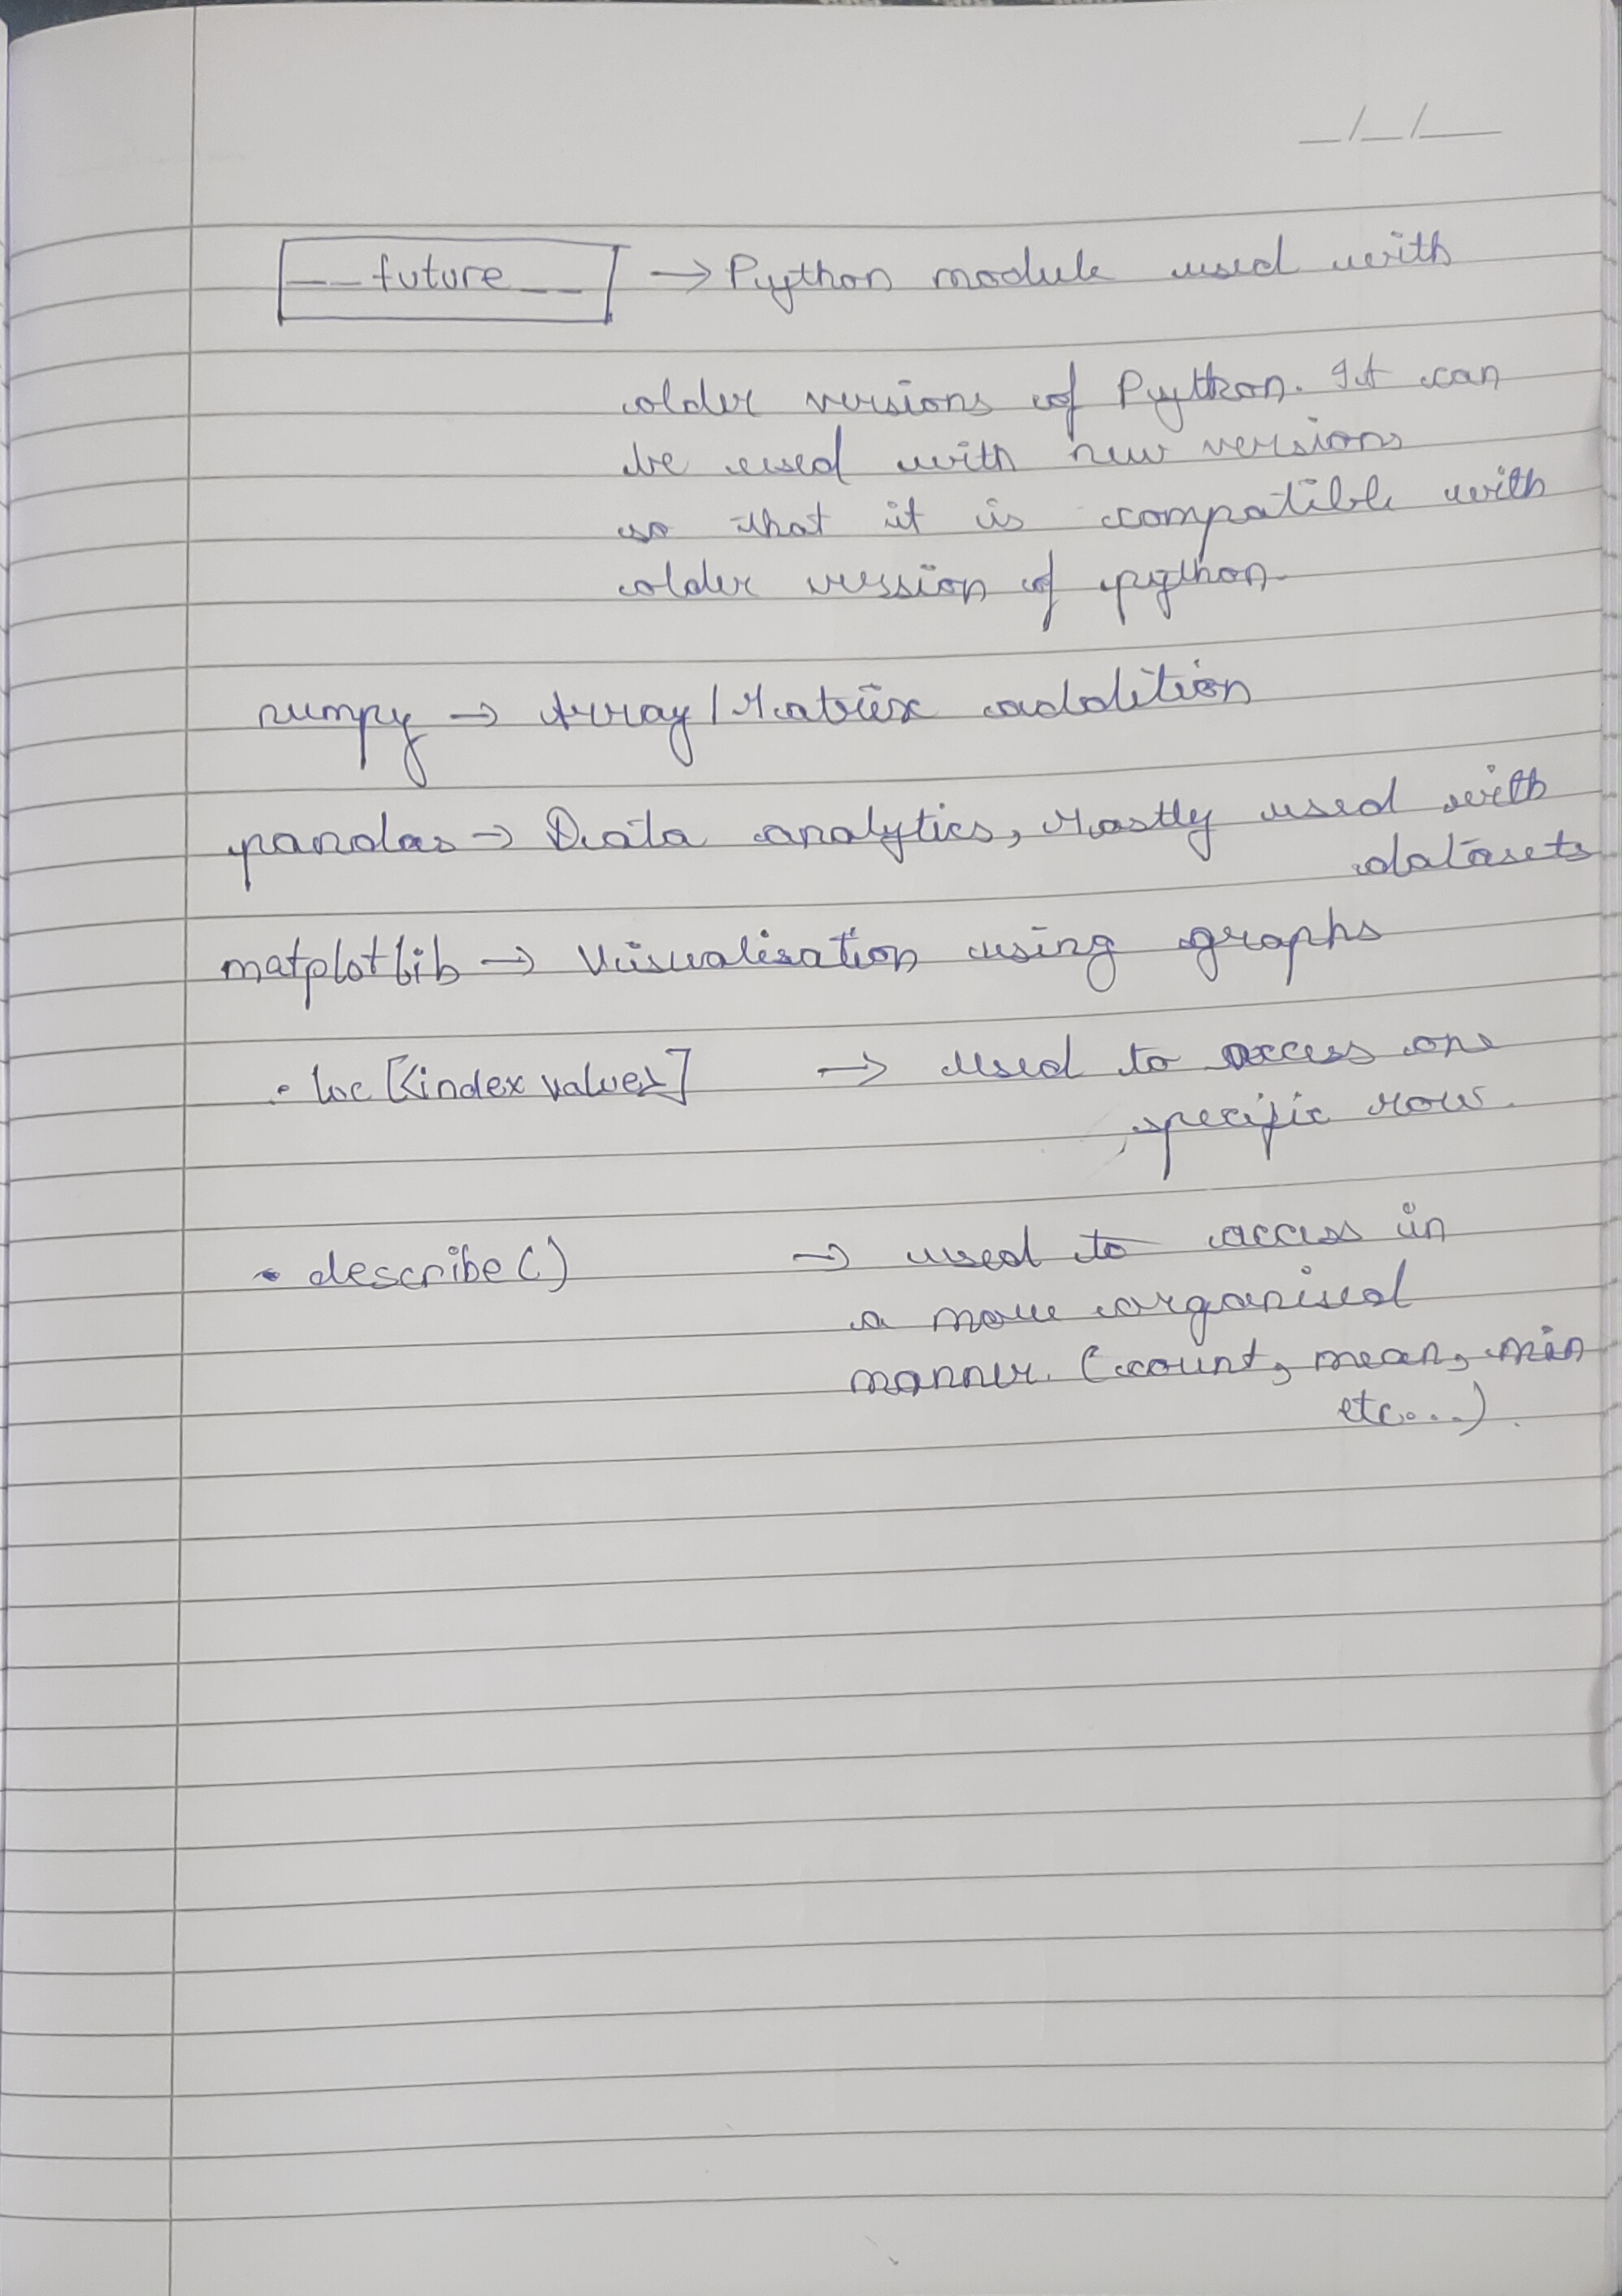 __/__/____
__future__ → Python module used with
older versions of Python. It can
be used with new versions
so that it is compatible with
older version of python.
numpy → Array/Matrix addition
pandas → Data analytics, Mostly used with
datasets
matplotlib → Visualisation using graphs
.loc[<index values>] → Used to access one
specific row.
.describe() → used to access in
a more organised
manner. (count, mean, min
etc....).